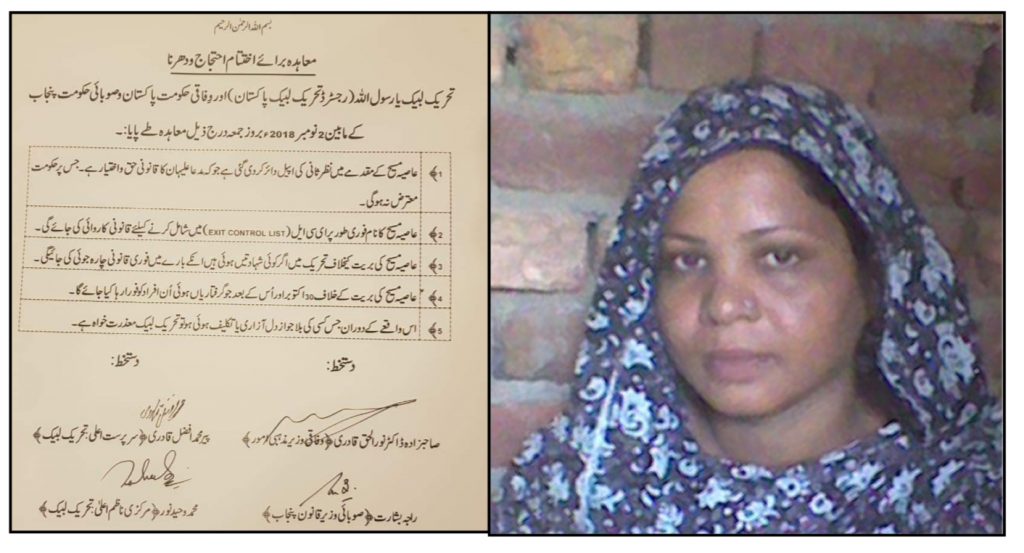 بسم اللہ الرحمٰن الرحیم
معاہدہ برائے اختتام احتجاج و دھرنا
تحریک لبیک یا رسول اللہ (رجسٹرڈ تحریک لبیک پاکستان) اور وفاقی حکومت پاکستان و صوبائی حکومت پنجاب
کے مابین 2 نومبر 2018ء بروز جمعہ درج ذیل معاہدہ طے پایا:۔
1﴾ عاصیہ مسیح کے مقدمے میں نظر ثانی کی اپیل دائر کردی گئی ہے جو کہ مدعا علیہان کا قانونی حق و اختیار ہے۔ جس پر حکومت
معترض نہ ہوگی۔
2﴾ عاصیہ مسیح کا نام فوری طور پر ای سی ایل (EXIT CONTROL LIST) میں شامل کرنے کیلئے قانونی کاروائی کی جائے گی۔
3﴾ عاصیہ مسیح کی بریت کیخلاف تحریک میں اگر کوئی شہادتیں ہوئی ہیں انکے بارے میں فوری قانونی چارہ جوئی کی جائیگی۔
4﴾ عاصیہ مسیح کی بریت کے خلاف 30 اکتوبر اور اُس کے بعد جو گرفتاریاں ہوئی اُن افراد کو فوراً رہا کیا جائے گا۔
5﴾ اس واقعے کے دوران جس کسی کی بلا جواز دل آزاری یا تکلیف ہوئی ہو تو تحریک لبیک معذرت خواہ ہے۔
دستخط: دستخط:
صاحبزادہ ڈاکٹر نور الحق قادری ﴿وفاقی وزیر مذہبی امور﴾ پیر محمد افضل قادری ﴿سرپرست اعلیٰ تحریک لبیک﴾
راجہ بشارت ﴿صوبائی وزیر قانون پنجاب﴾ محمد وحید نور ﴿مرکزی ناظم اعلیٰ تحریک لبیک﴾